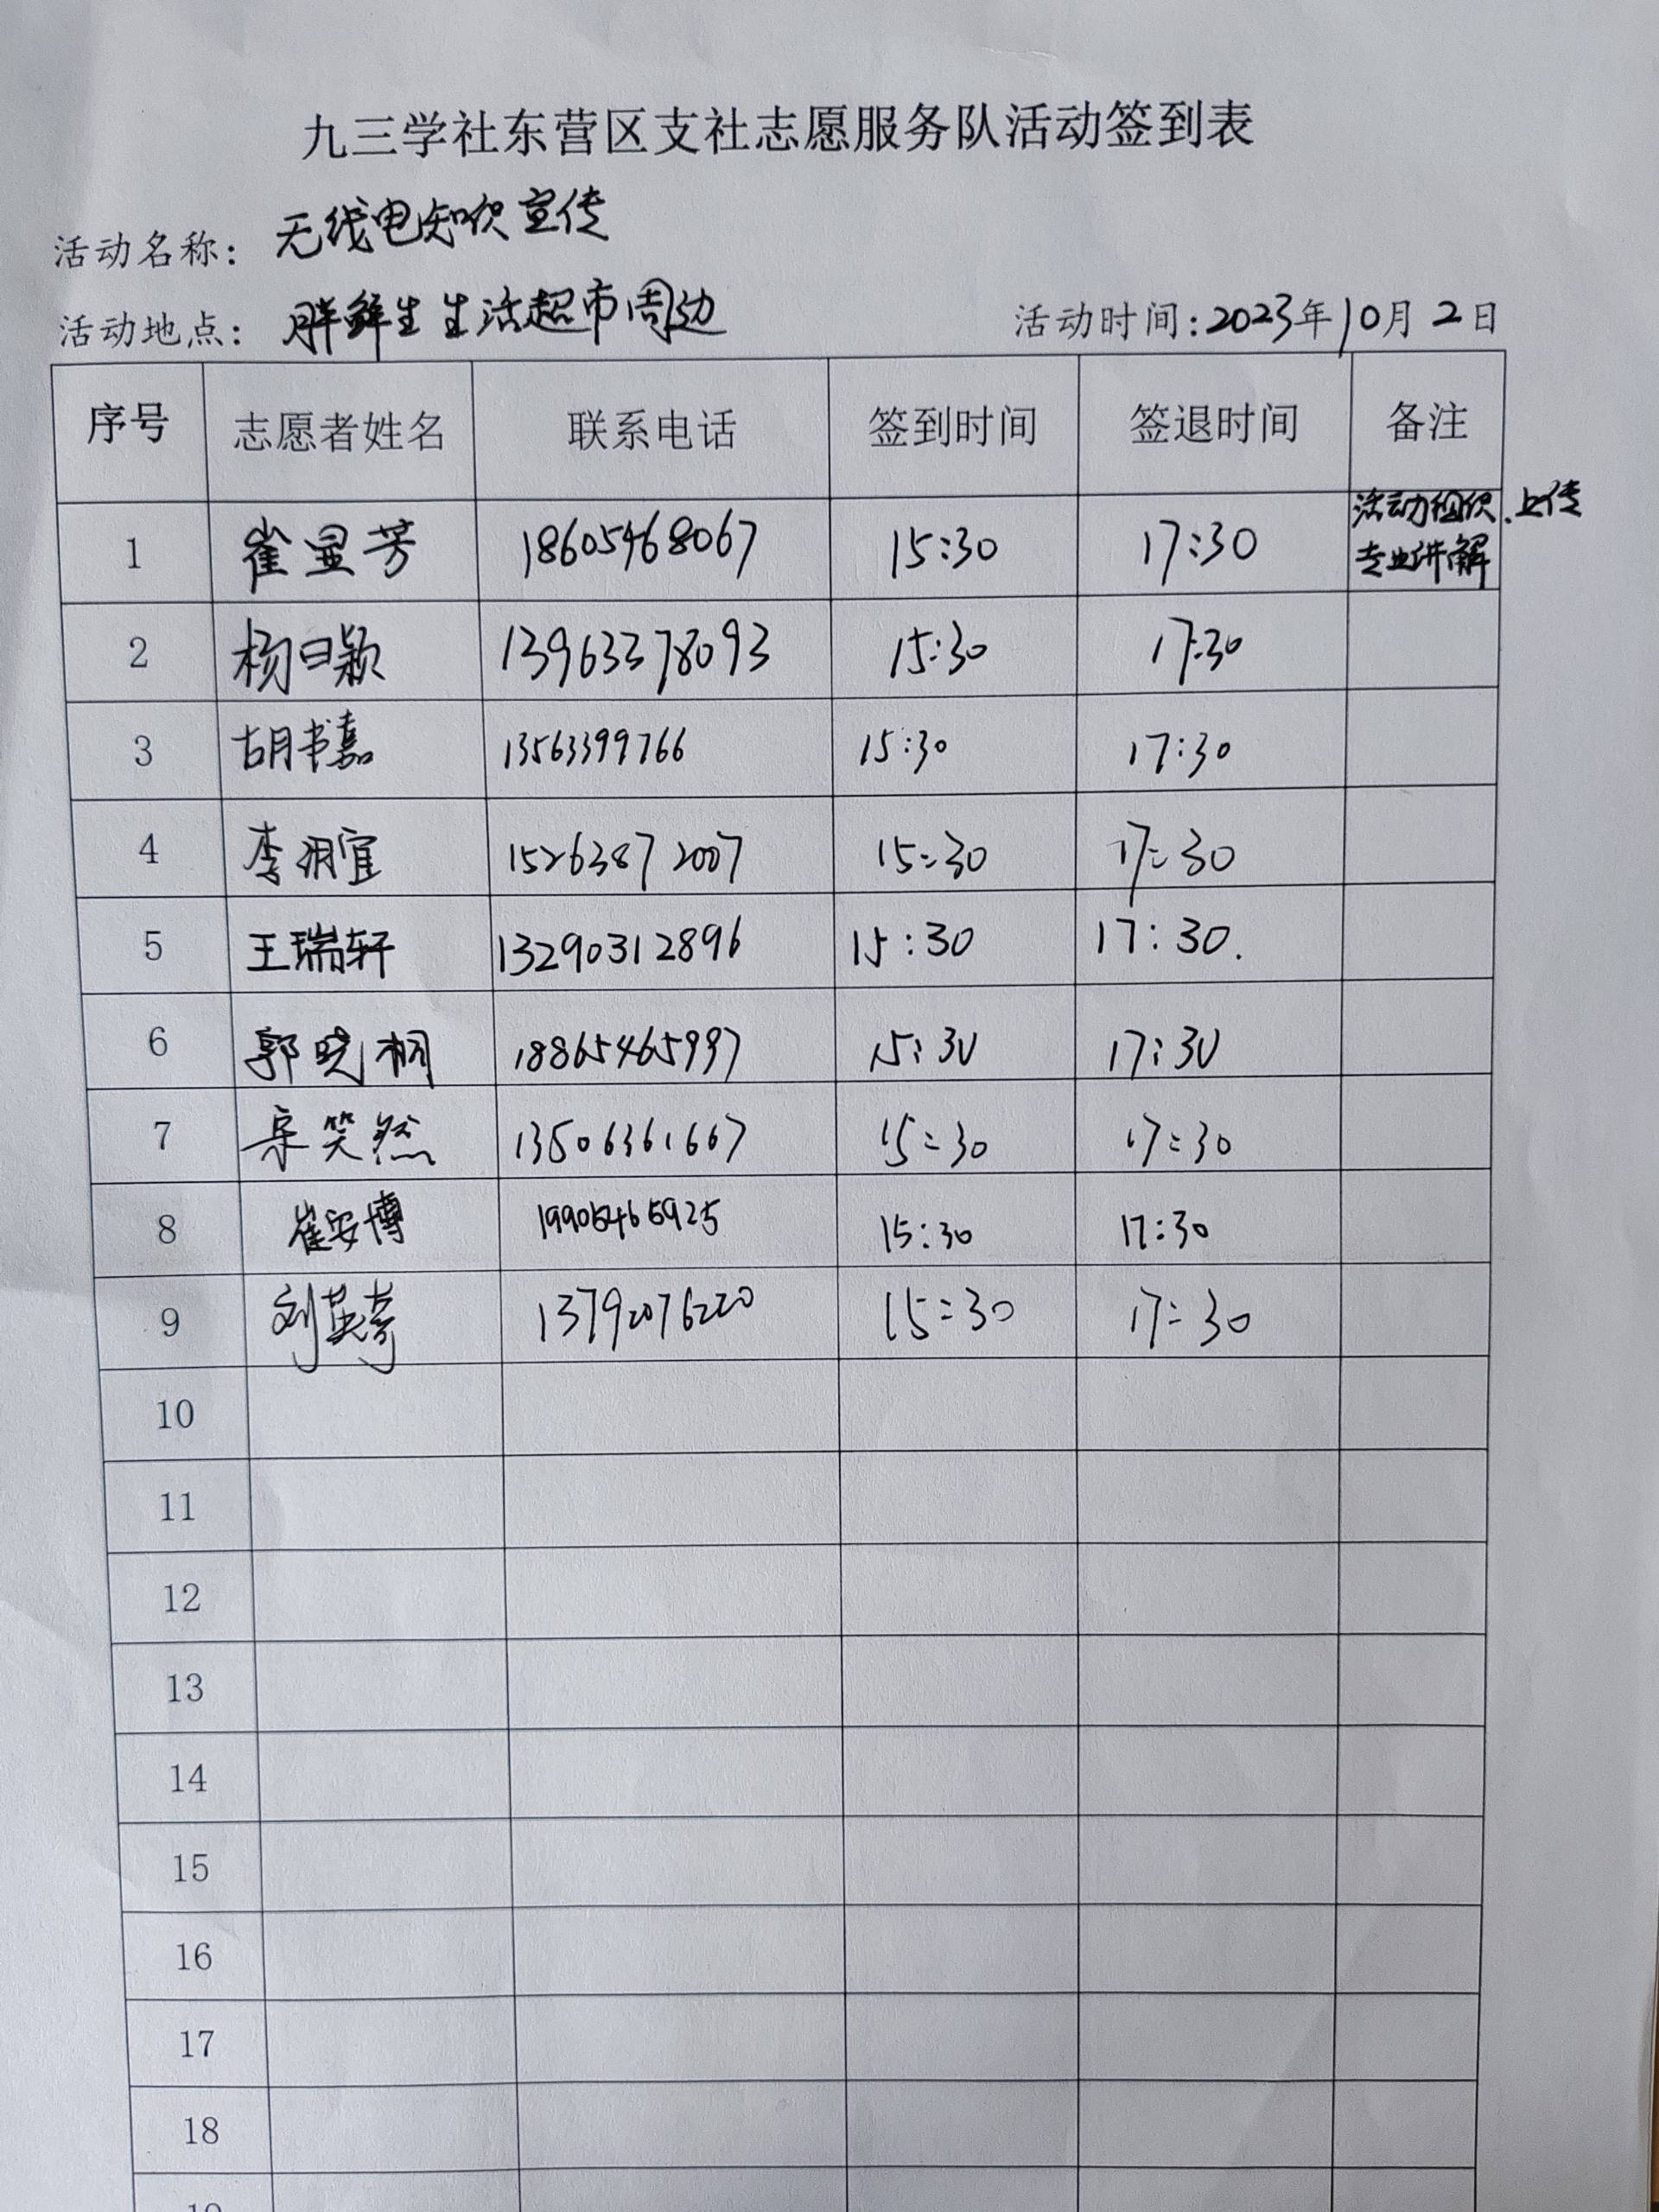 九三学社东营区支社志愿服务队活动签到表
活动名称: 无线电知识宣传
活动地点: 胖鲜生生活超市周边 活动时间:2023年10月2日
序号 志愿者姓名 联系电话 签到时间 签退时间 备注
1 崔显芳 18605468067 15:30 17:30 活动组织、上传
专业讲解
2 杨曰颖 13963378093 15:30 17:30
3 胡书嘉 13563399766 15:30 17:30
4 李润宜 15263872007 15:30 17:30
5 王瑞轩 13290312896 15:30 17:30.
6 郭晓桐 18865465997 15:30 17:30
7 宋笑然 13506361667 15:30 17:30
8 崔安博 19905465925 15:30 17:30
9 刘英 13792076220 15:30 17:30
10
11
12
13
14
15
16
17
18
19